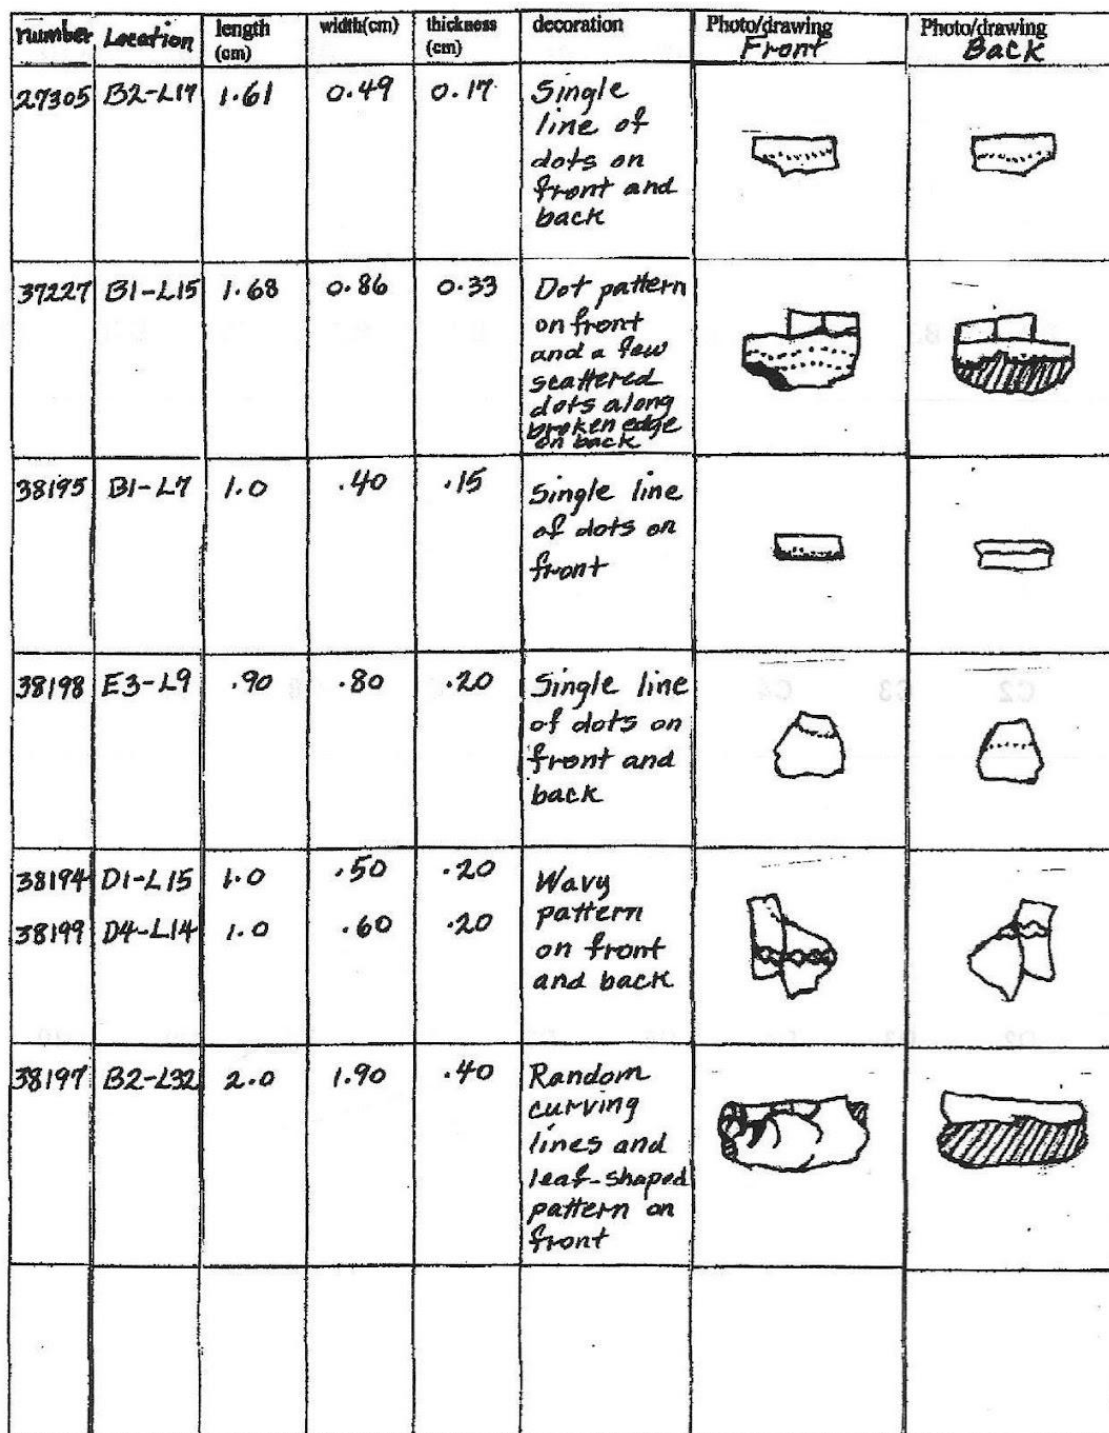 number Location length (cm) width(cm) thickness (cm) decoration Photo/drawing Front Photo/drawing Back
27305 B2-L17 1.61 0.49 0.17 Single
line of
dots on
front and
back
37227 B1-L15 1.68 0.86 0.33 Dot pattern
on front
and a few
scattered
dots along
broken edge
on back
38195 B1-L7 1.0 .40 .15 Single line
of dots on
front
38198 E3-L9 .90 .80 .20 Single line
of dots on
front and
back
38194 D1-L15 1.0 .50 .20 Wavy
pattern
38199 D4-L14 1.0 .60 .20 on front
and back
38197 B2-L32 2.0 1.90 .40 Random
curving
lines and
leaf-shaped
pattern on
front
C2 C3 C4